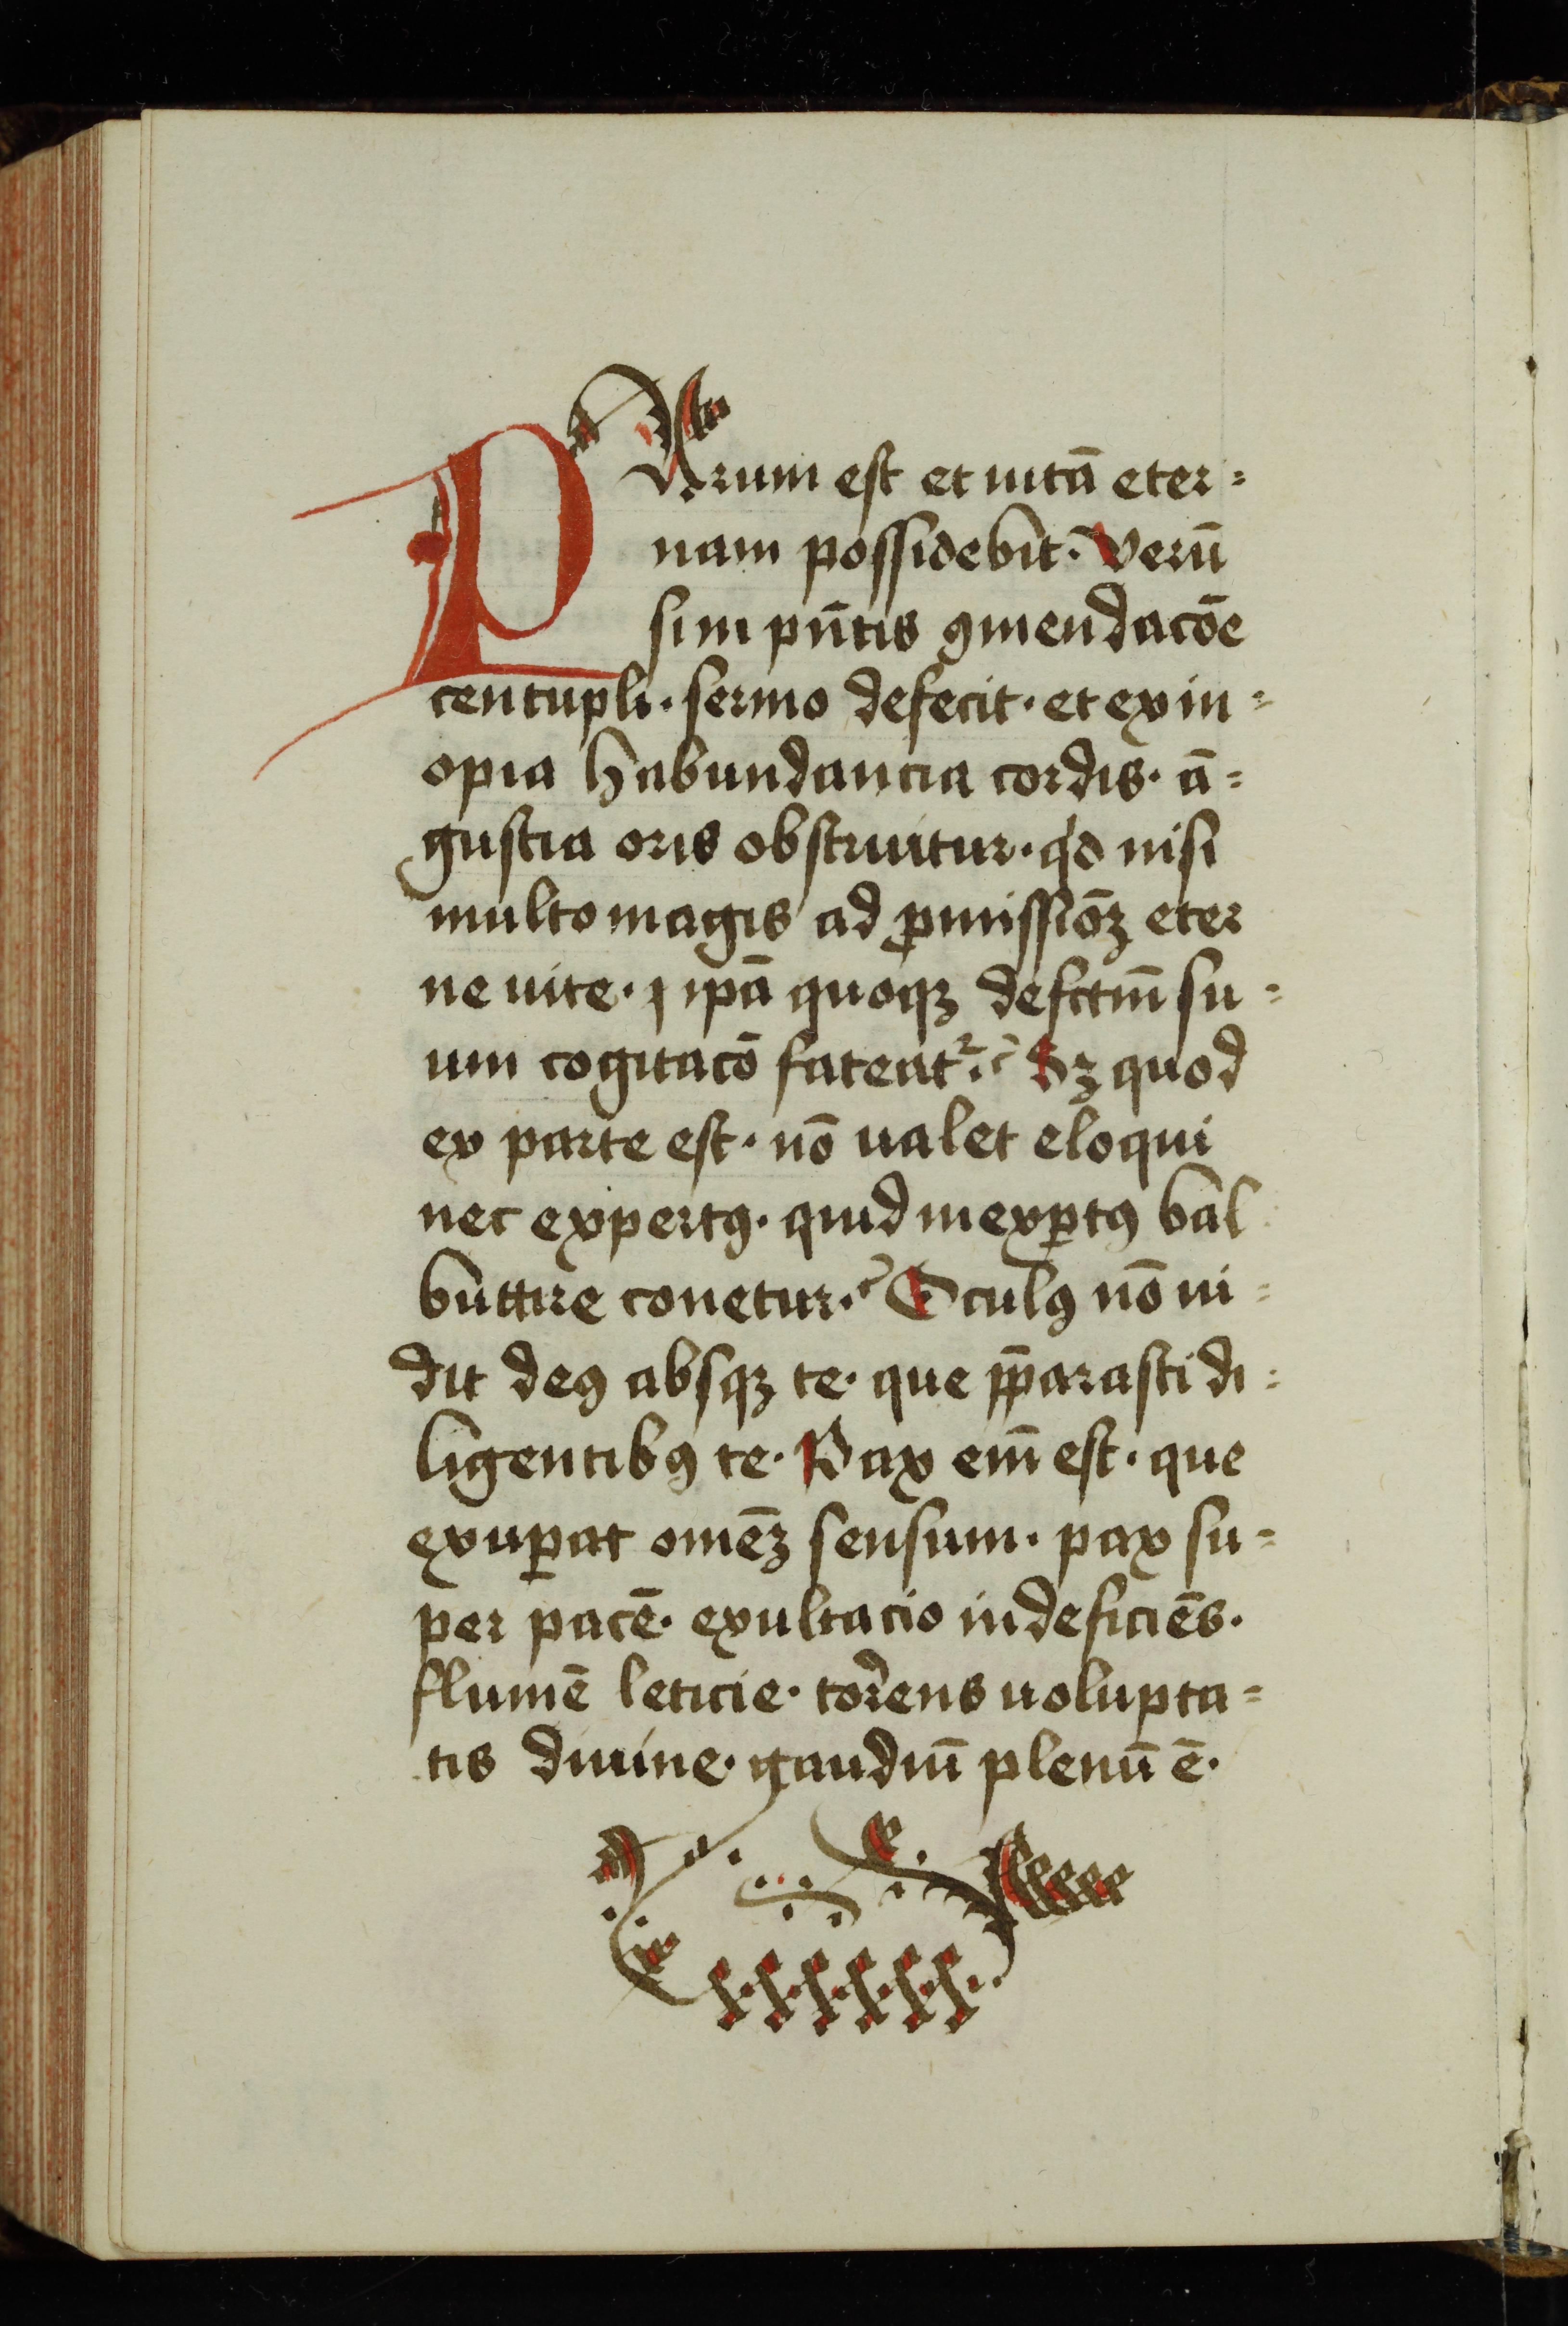 PArum est et uitā eter=
nam possidebit. Verū
sim pn̄tis ꝯmendacōe
centupli. sermo defecit. et ex in=
opia habundancia cordis. ā=
gustia oris obstruitur. qd nisi
multo magis ad ꝓmissiōꝫ eter
ne uite. ipā quoqꝫ defctm̄ su=
um cogitacō fateatᷣ. Sꝫ quod
ex parte est. nō ualet eloqui
nec expertꝰ. quid inexꝑtꝰ bal
buttire conetur. Oculꝰ nō ui=
dit deꝰ absqꝫ te. que p̄parasti di=
ligentibꝰ te. Pax em̄ est. que
exuꝑat omēꝫ sensum. pax su=
per pacē. exultacio indeficiēs.
flumē leticie. torrens uolupta=
tis diuine. gaudiū plenū ē.